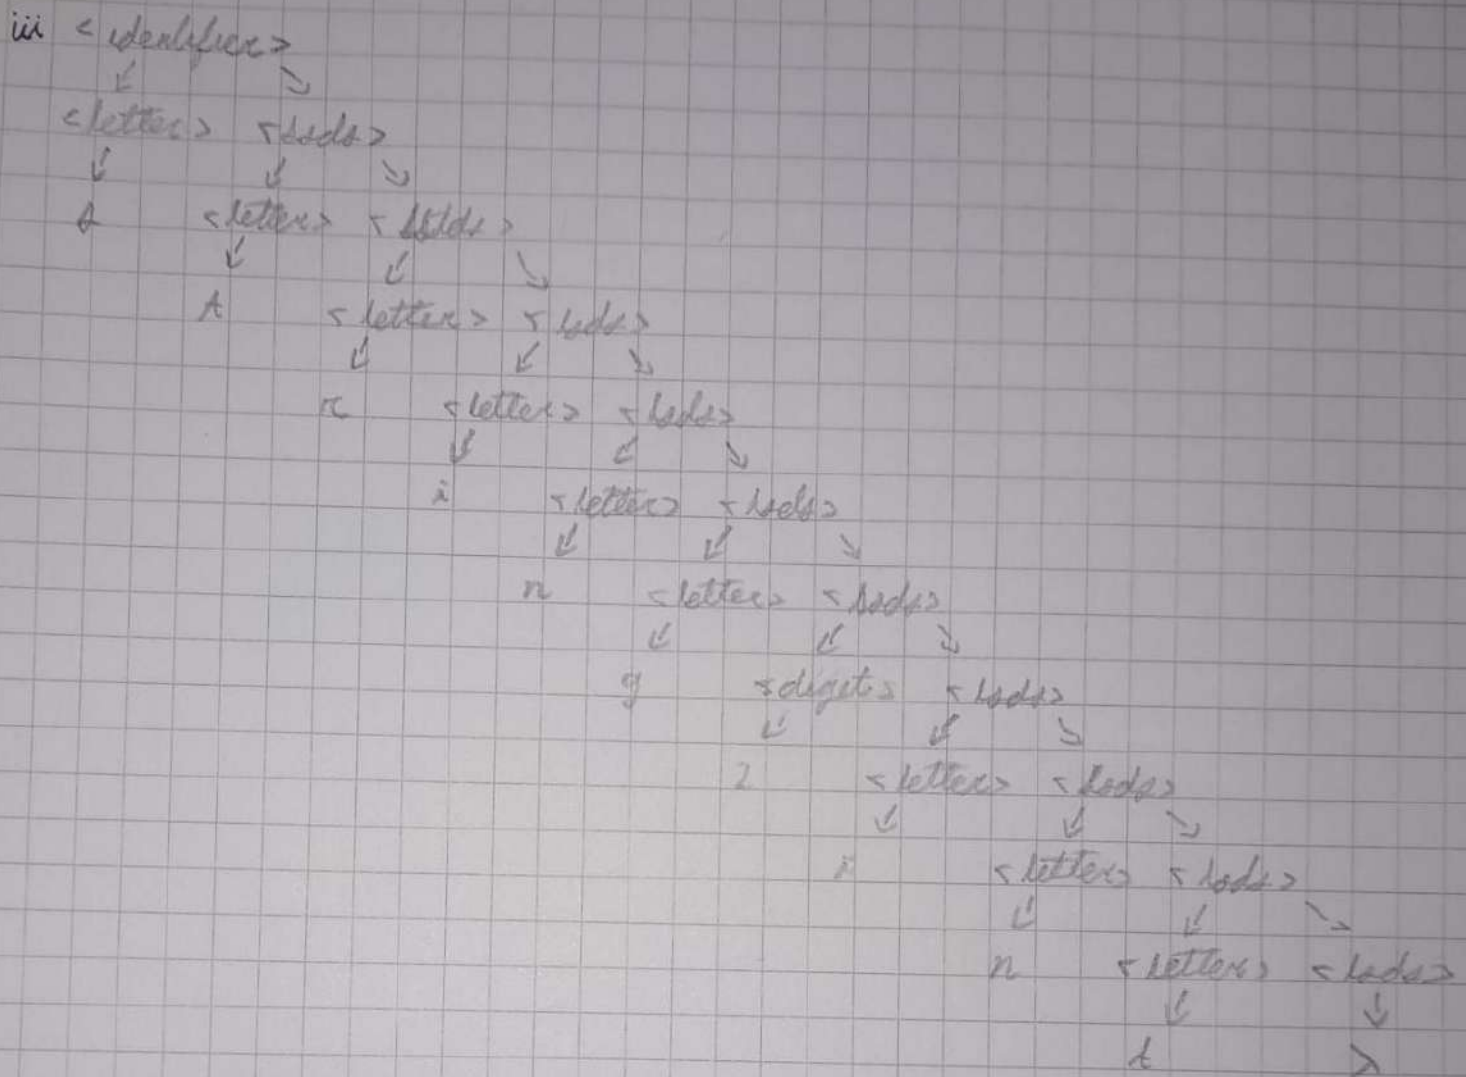 iii <identifier>
<letter> <lsds>
s <letter> <lsds>
t <letter> <lsds>
r <letter> <lsds>
i <letter> <lsds>
n <letter> <lsds>
g <digit> <lsds>
2 <letter> <lsds>
i <letter> <lsds>
n <letter> <lsds>
t λ